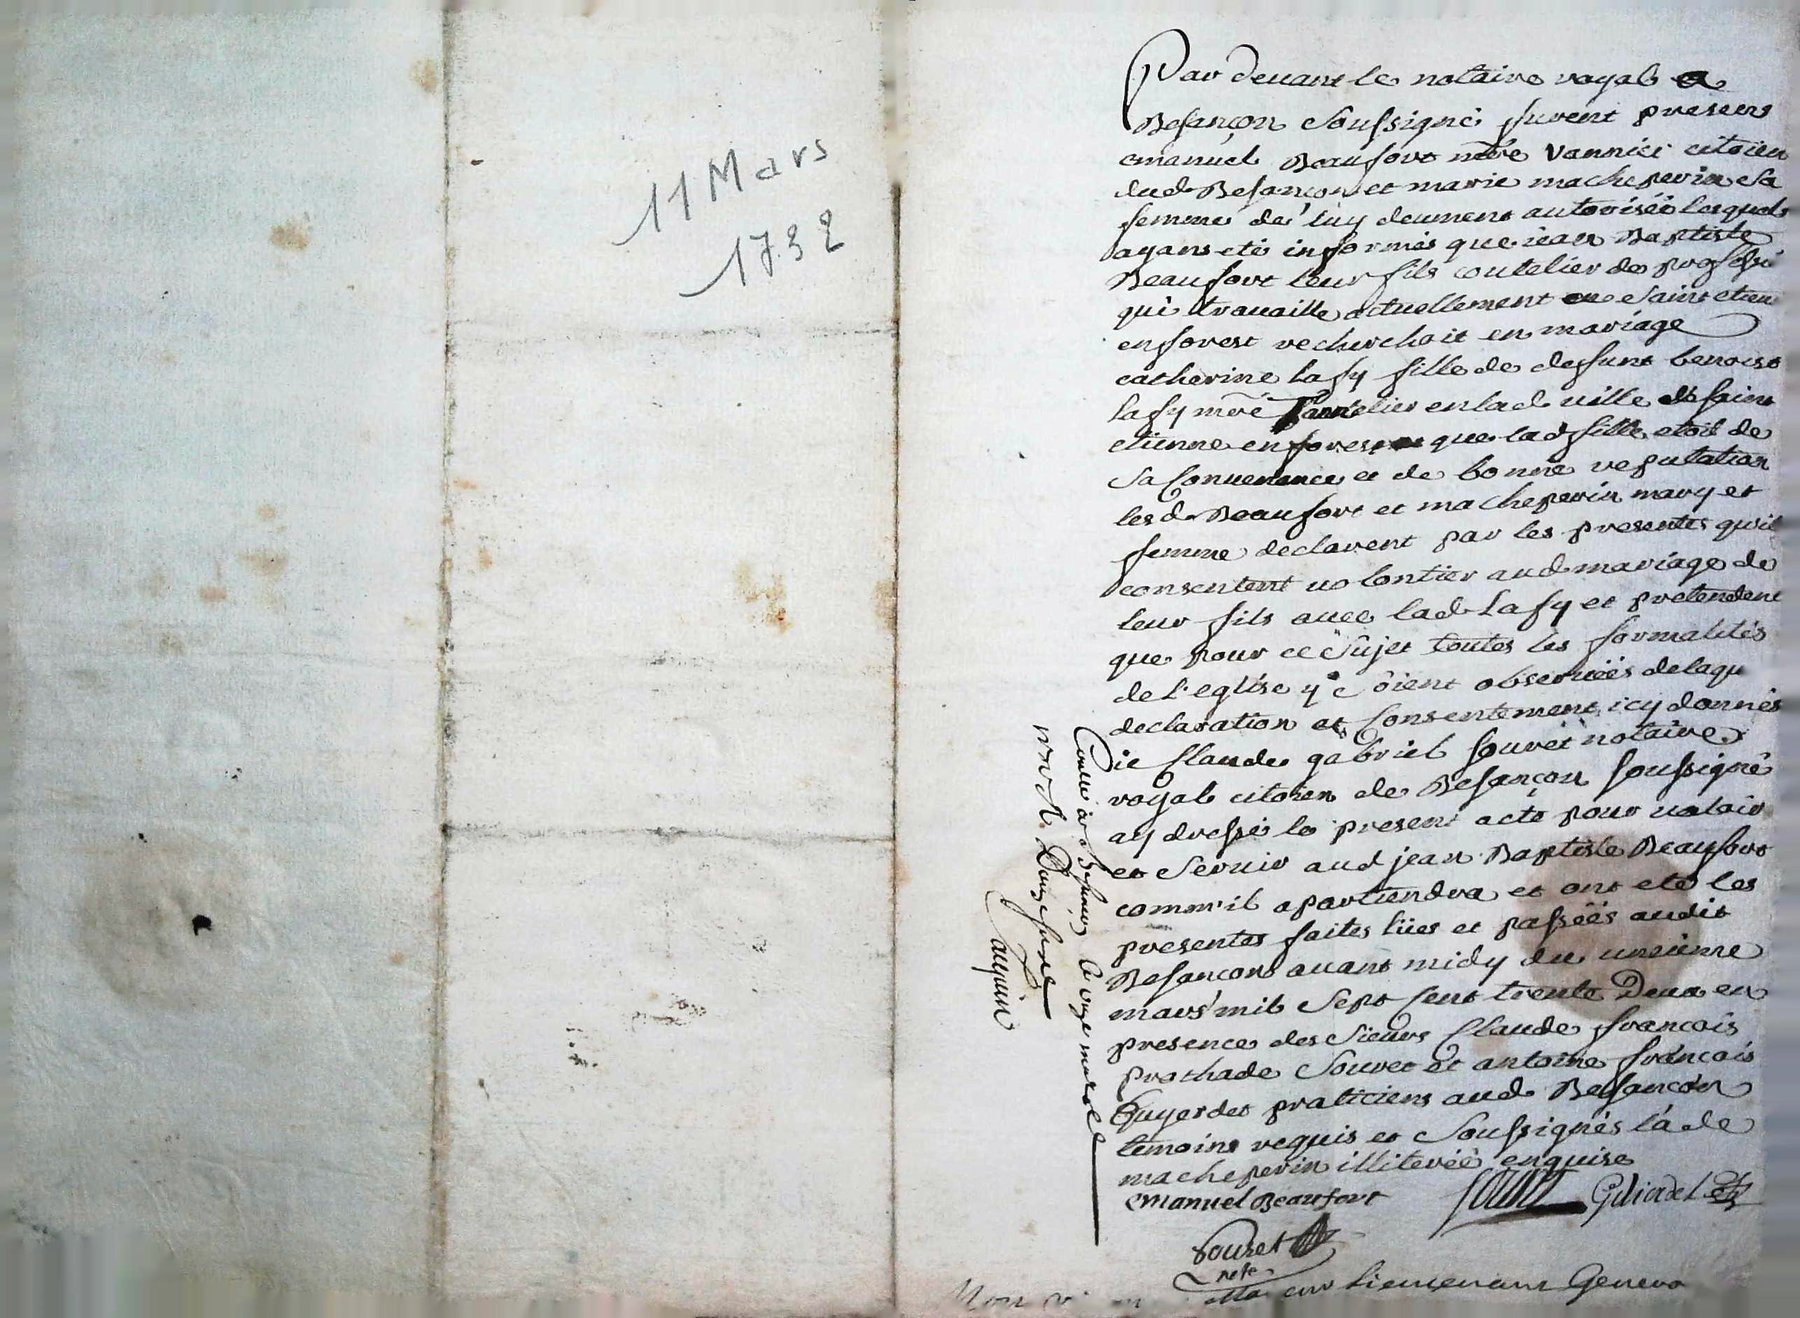 11 Mars
1732
Par devant le notaire royal a
Besançon soussigné furent presens
emanuel Beaufort mtre vannier citoïen
dud Besançon et marie macheperin sa
femme de luy deument autorisée lesquels
ayans eté informés que iean Baptiste
Beaufort leur fils coutelier de profession
qui travaille actuellement en saint etien
en forest recherchoit en mariage
catherine Lafy fille de deffunt benoist
Lafy mtre en lad ville de saint
etienne en forest que lad fille etoit de
sa Convenance et de bonne reputation
lesd Beaufort et macheperin mary et
femme declarent par les presentes qu'il
consentent volontier aud mariage de
leur fils avec lad Lafy et pretendent
que pour ce sujet toutes les formalités
de l'eglise y soient observéés delaqu
declaration et Consentement icy donnés
ie Claude gabriel Souret notaire
royal citoïen de Besançon soussigné
ay dressé le present acte pour valoir
et servir aud jean Baptiste Beaufort
comm'il apartiendra et ont eté les
presentes faites lües et passéés audit
Besançon avant midy du unzieme
mars mil sept cent trente Deux en
presence des sieurs Claude françois
prothade Souret et antoine françois
praticiens aud Besançon
temoins requis et soussignés la de
macheperin illiteréé enquise
emanuel Beaufort
Souret
Souret
nore
lieutenant General
Conllé a Besançon le onze mars
R. Douze sure